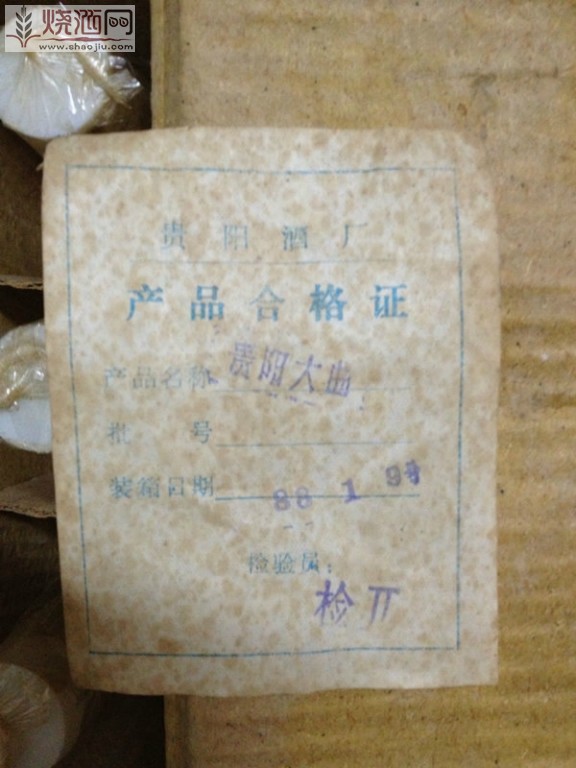 烧酒网
www.shaojiu.com
贵阳酒厂
产品合格证
产品名称 贵阳大曲
批号
装箱日期 88 1 9
检验员:
检